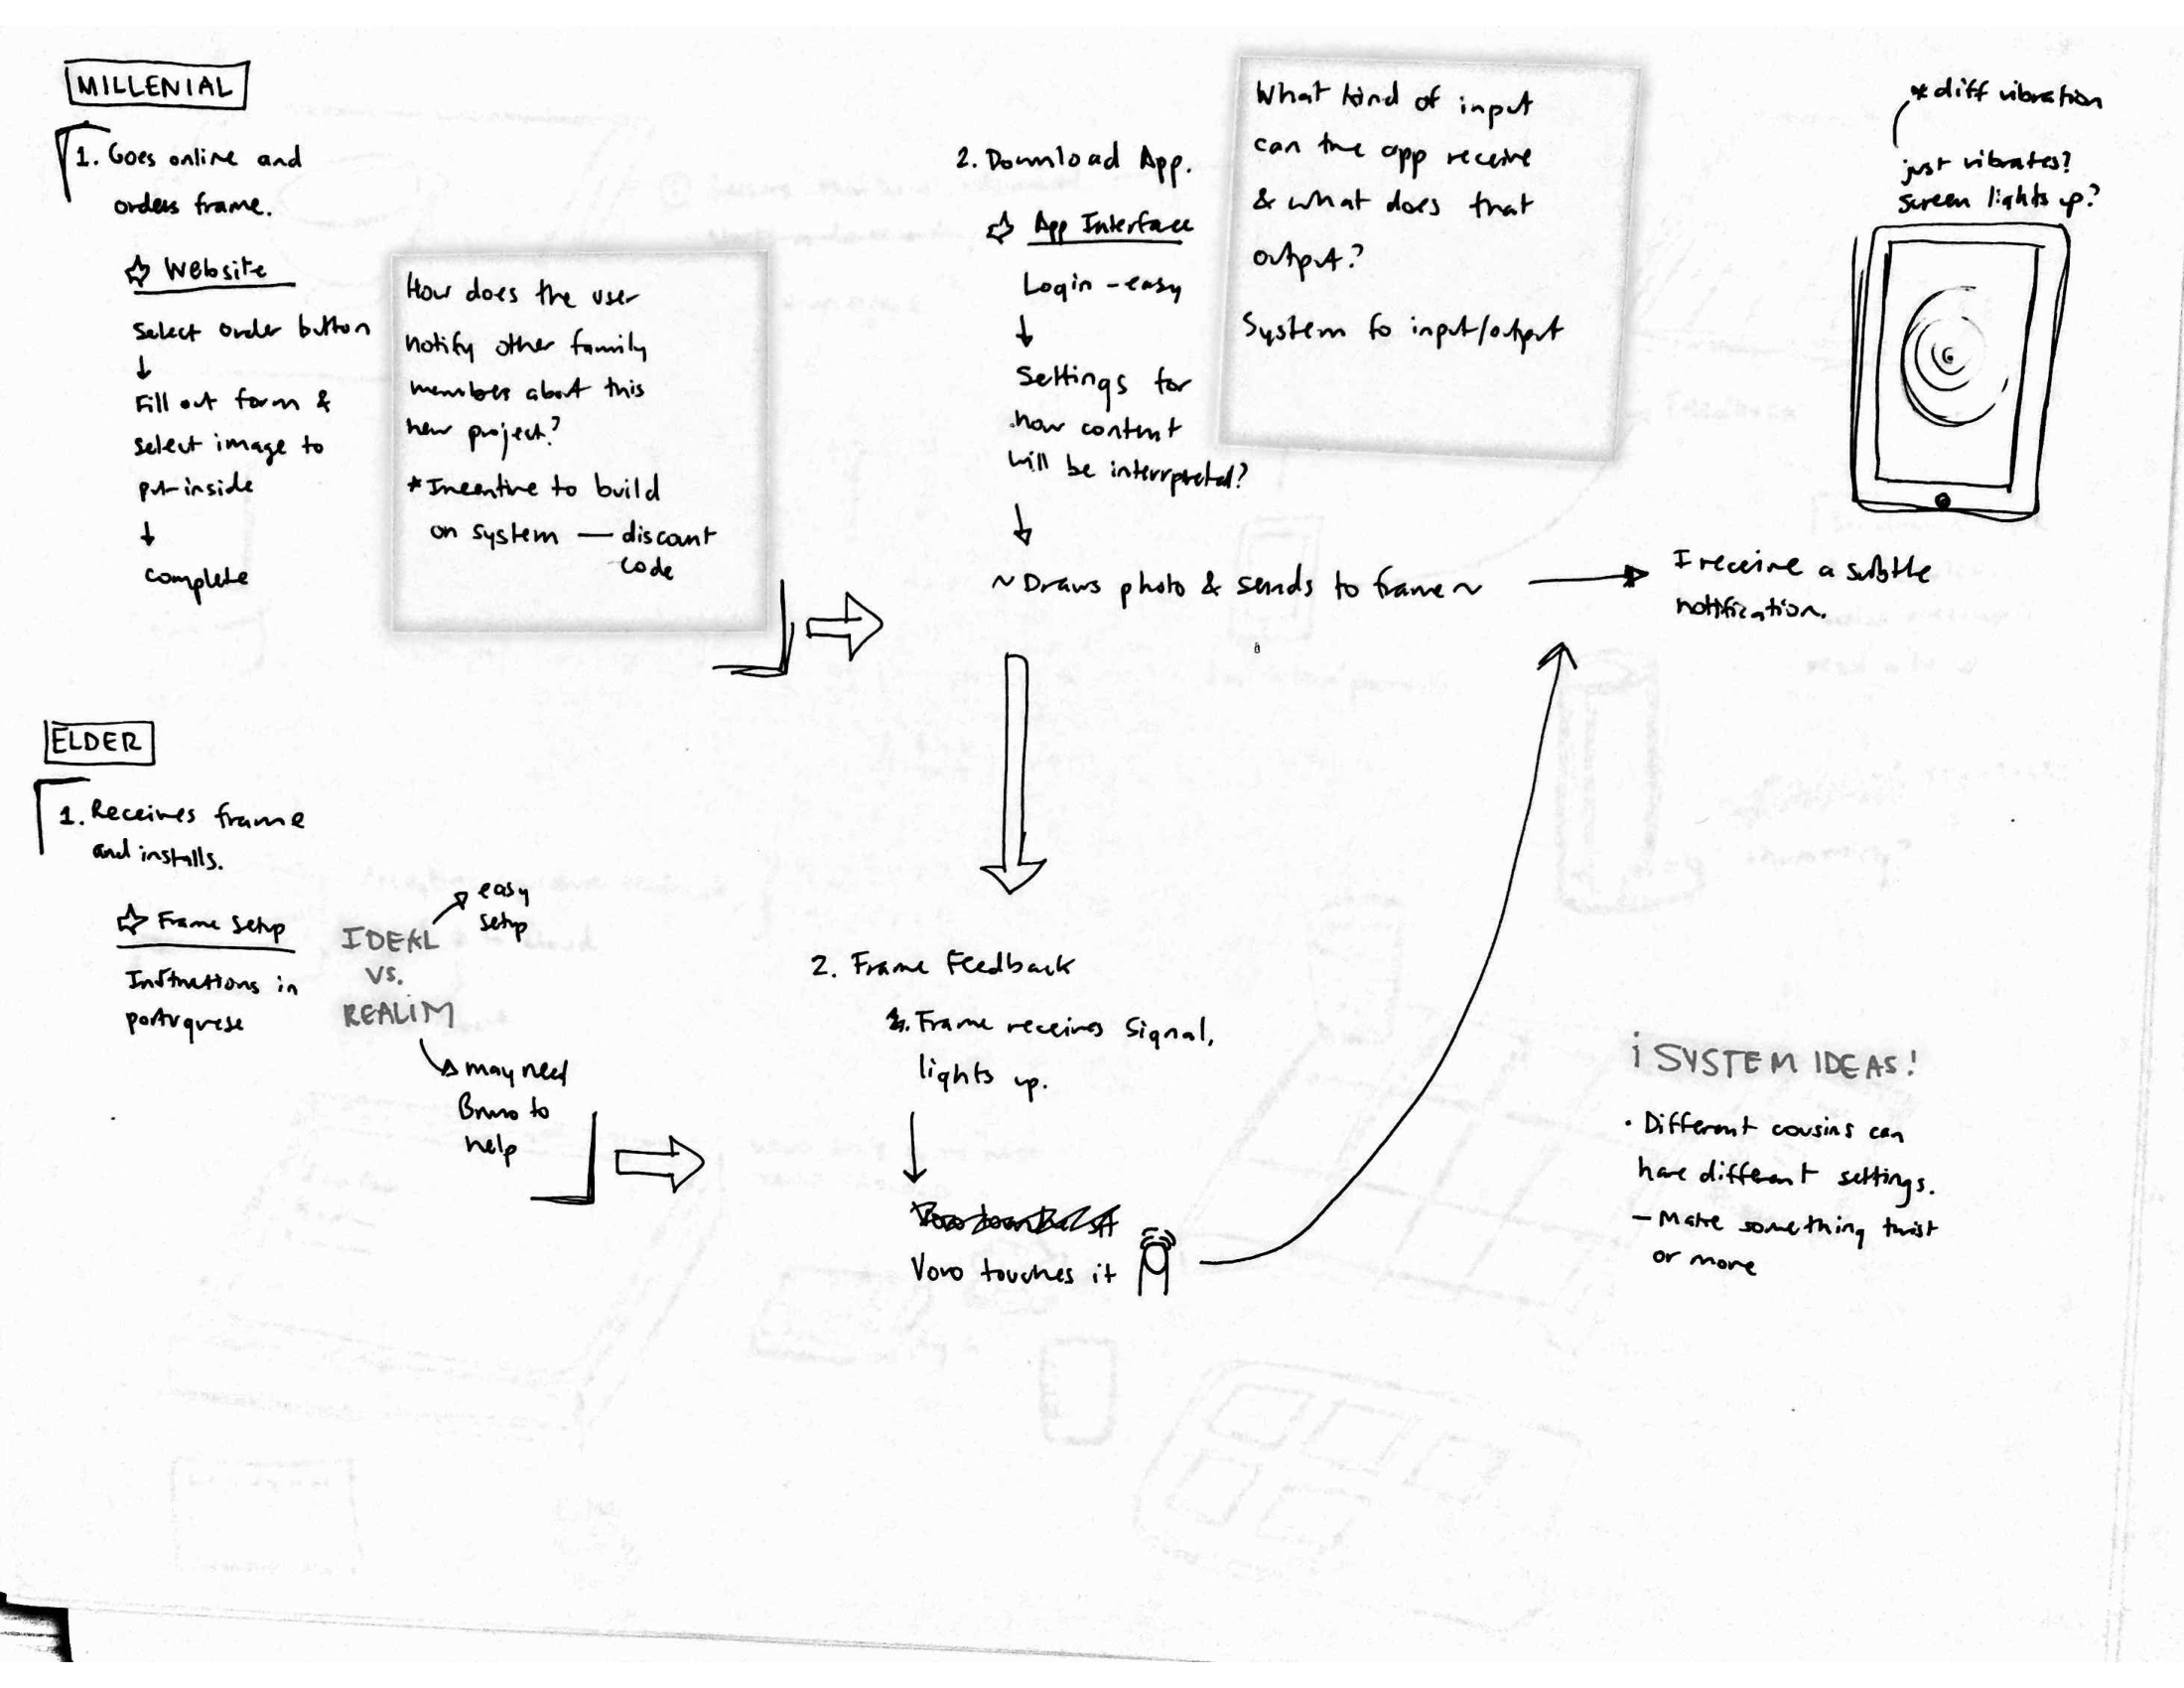 MILLENIAL
1. Goes online and
orders frame.
Website
Select order button
↓
Fill out form &
select image to
put inside
↓
complete
How does the user
notify other family
members about this
new project?
*Incentive to build
on system — discount
code
2. Download App.
App Interface
Login - easy
↓
Settings for
how content
will be interrpretal?
↓
~Draws photo & sends to frame~
What kind of input
can the app receive
& what does that
output?
System fo input/output
* diff vibration
just vibrates?
screen lights up?
I receive a subtle
notification.
ELDER
1. Receives frame
and installs.
Frame Setup
Instructions in
portuguese
IDEAL
VS.
REALIM
easy
setup
may need
Bruno to
help
2. Frame Feedback
Frame receives signal,
lights up.
Vovo touches it
¡SYSTEM IDEAS!
· Different cousins can
have different settings.
- Make something twist
or more